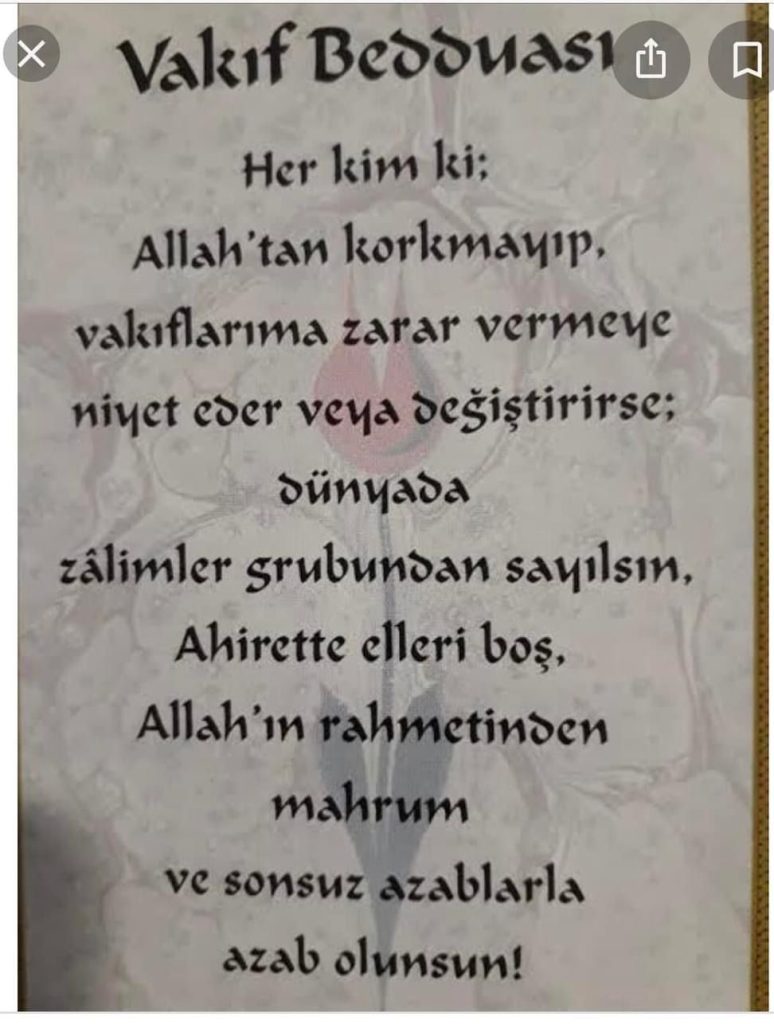 Vakıf Bedduası
Her kim ki;
Allah'tan korkmayıp,
vakıflarıma zarar vermeye
niyet eder veya değiştirirse;
dünyada
zâlimler grubundan sayılsın,
Ahirette elleri boş,
Allah'ın rahmetinden
mahrum
ve sonsuz azablarla
azab olunsun!